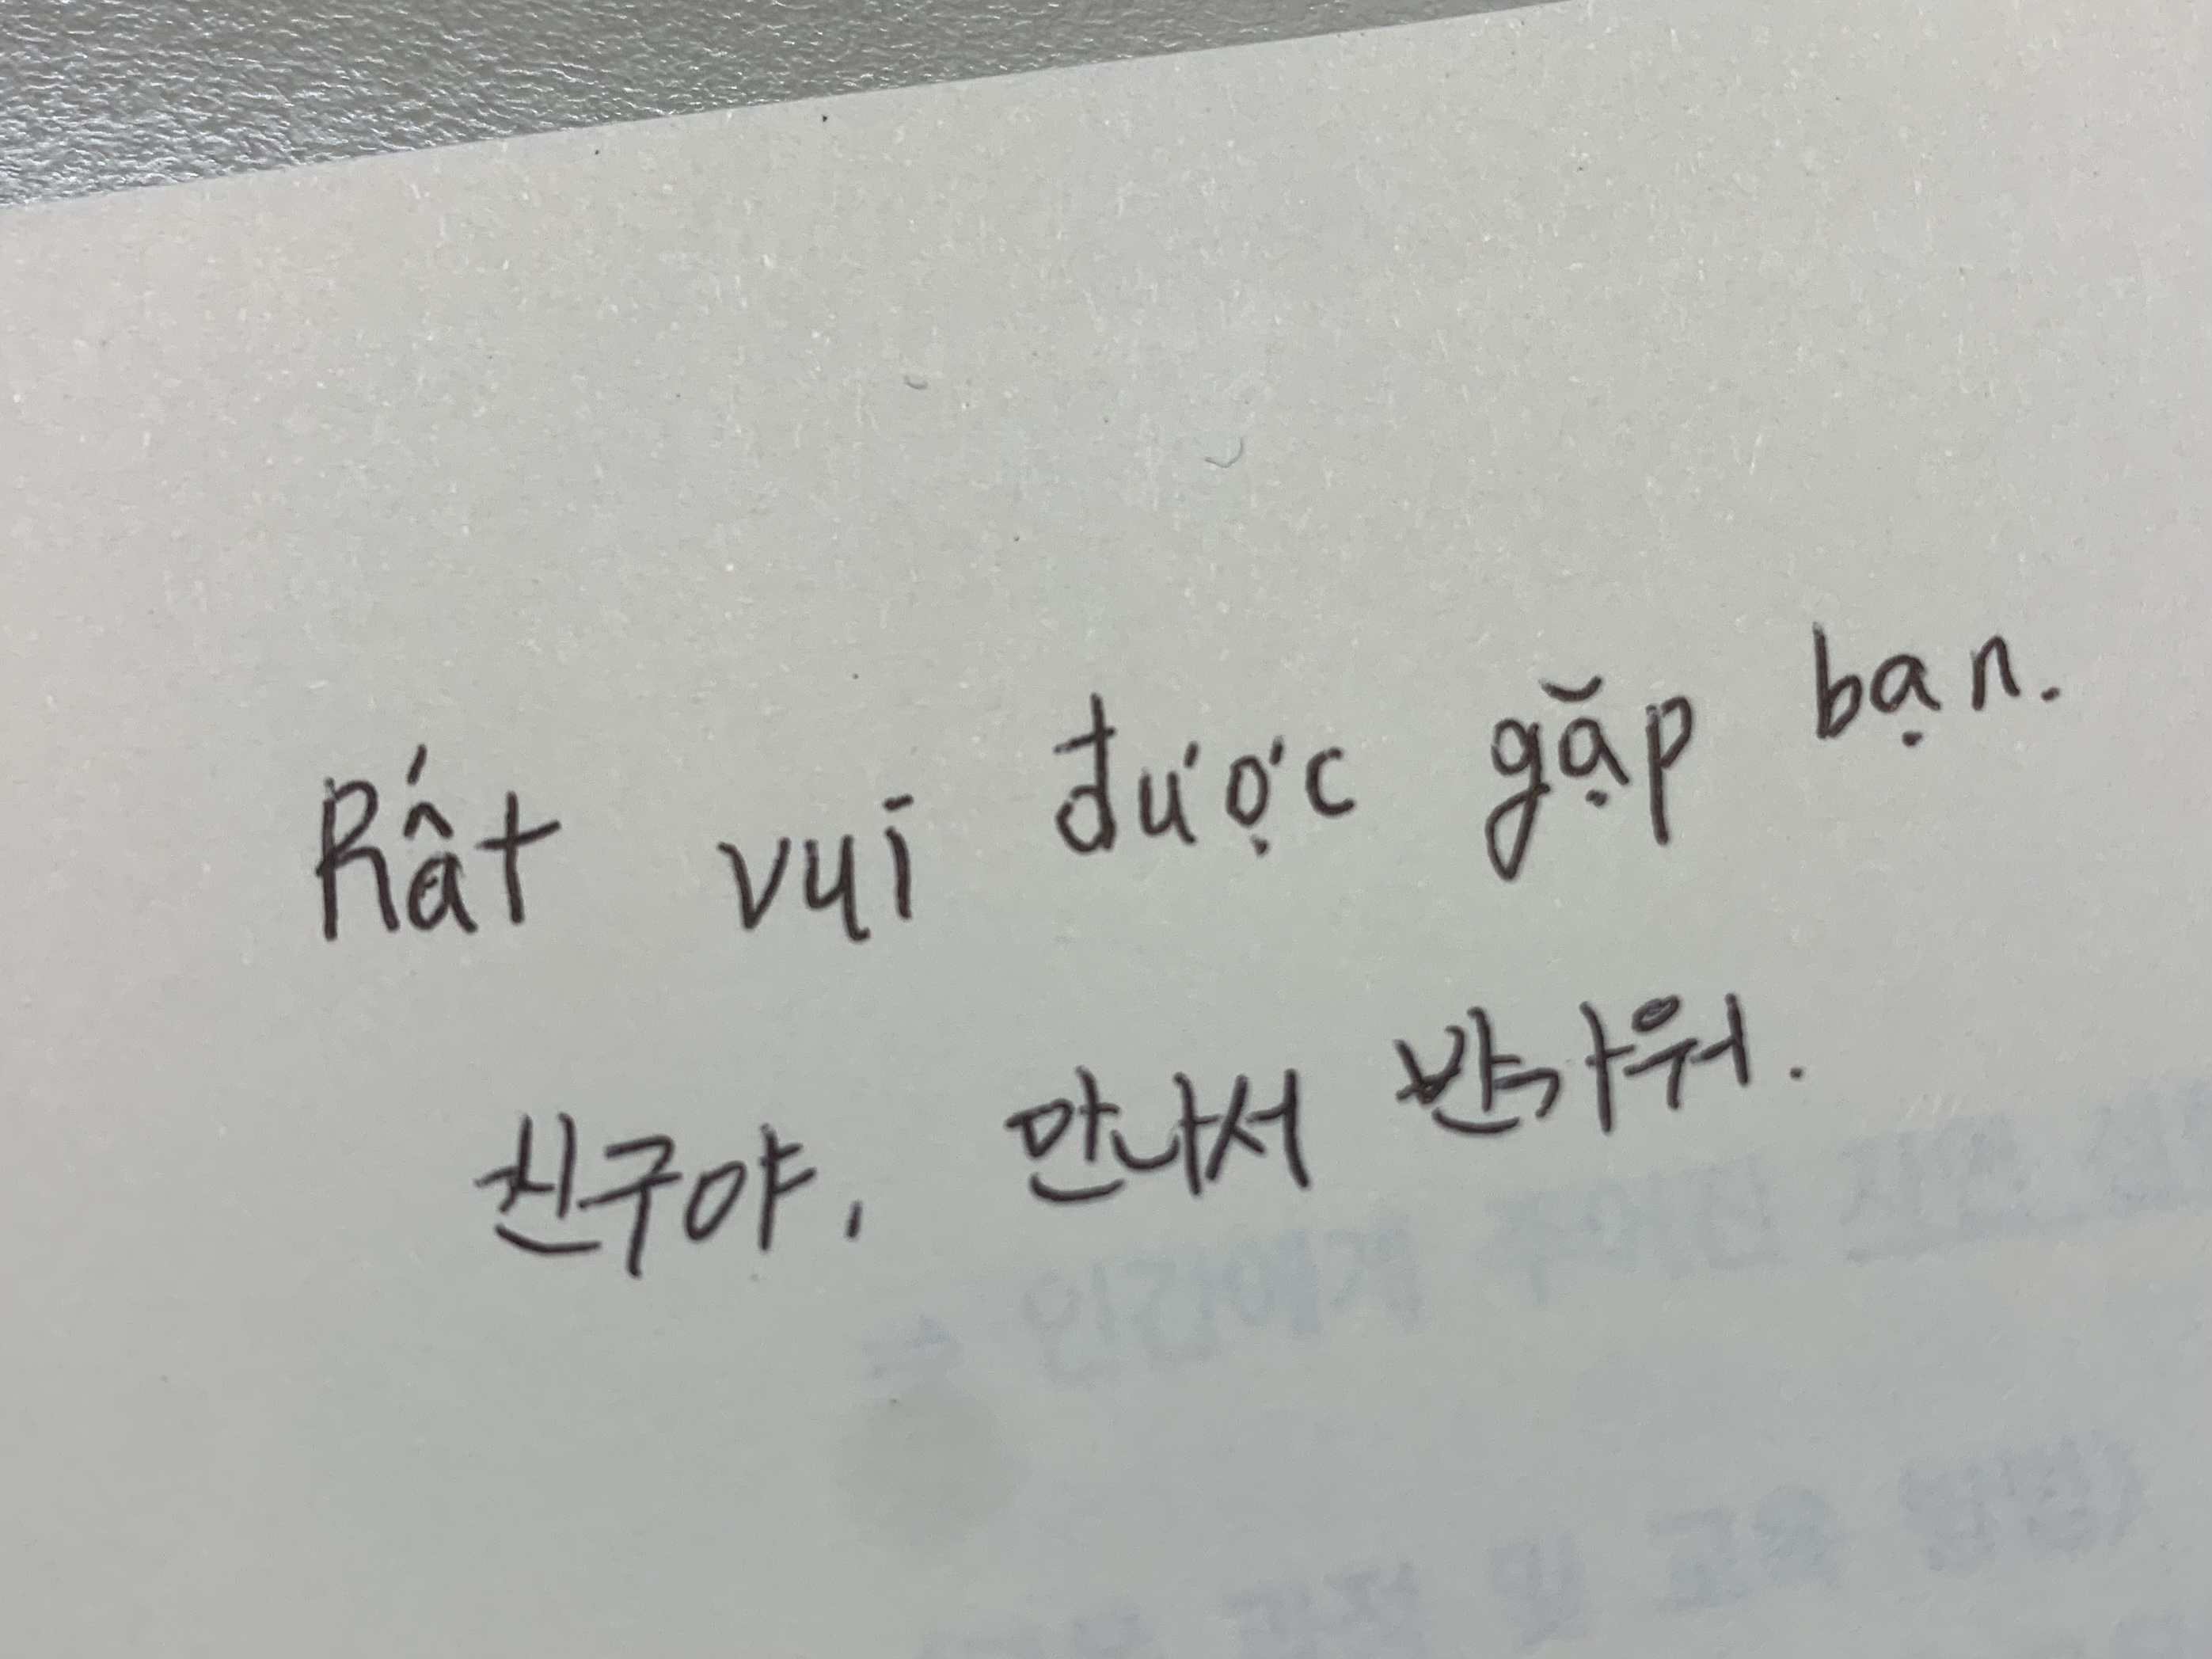 Rất vui được gặp bạn.
친구야, 만나서 반가워.